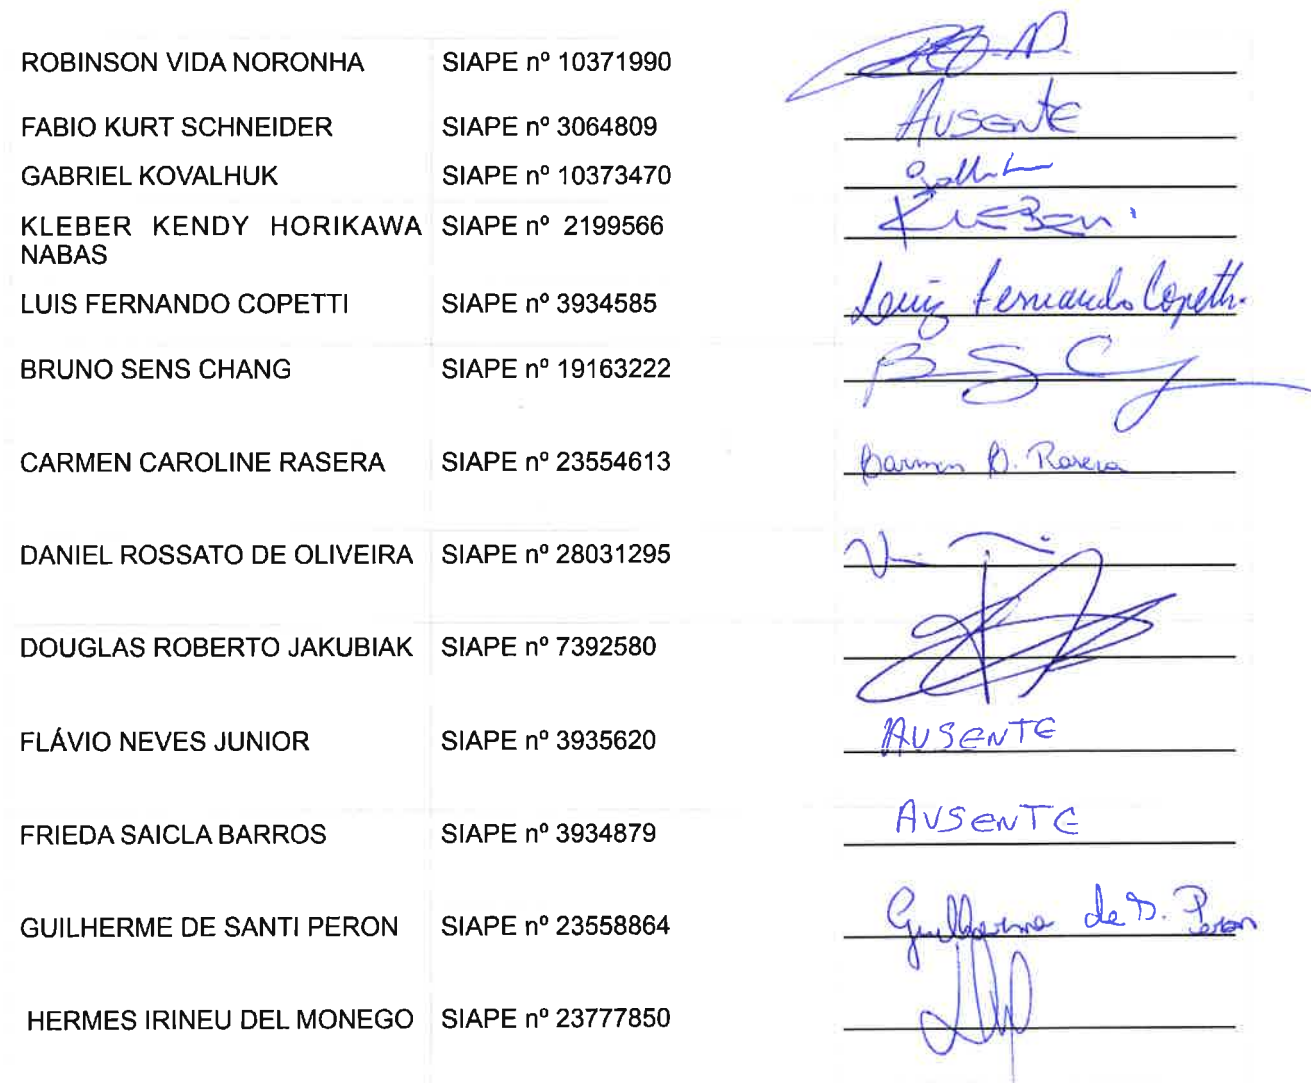 ROBINSON VIDA NORONHA SIAPE nº 10371990
FABIO KURT SCHNEIDER SIAPE nº 3064809 AUSENTE
GABRIEL KOVALHUK SIAPE nº 10373470
KLEBER KENDY HORIKAWA SIAPE nº 2199566 KLEBER
NABAS
LUIS FERNANDO COPETTI SIAPE nº 3934585 Luiz Fernando Copetti
BRUNO SENS CHANG SIAPE nº 19163222 B S C
CARMEN CAROLINE RASERA SIAPE nº 23554613 Carmen C. Rasera
DANIEL ROSSATO DE OLIVEIRA SIAPE nº 28031295
DOUGLAS ROBERTO JAKUBIAK SIAPE nº 7392580
FLÁVIO NEVES JUNIOR SIAPE nº 3935620 AUSENTE
FRIEDA SAICLA BARROS SIAPE nº 3934879 AUSENTE
GUILHERME DE SANTI PERON SIAPE nº 23558864 Guilherme de S. Peron
HERMES IRINEU DEL MONEGO SIAPE nº 23777850